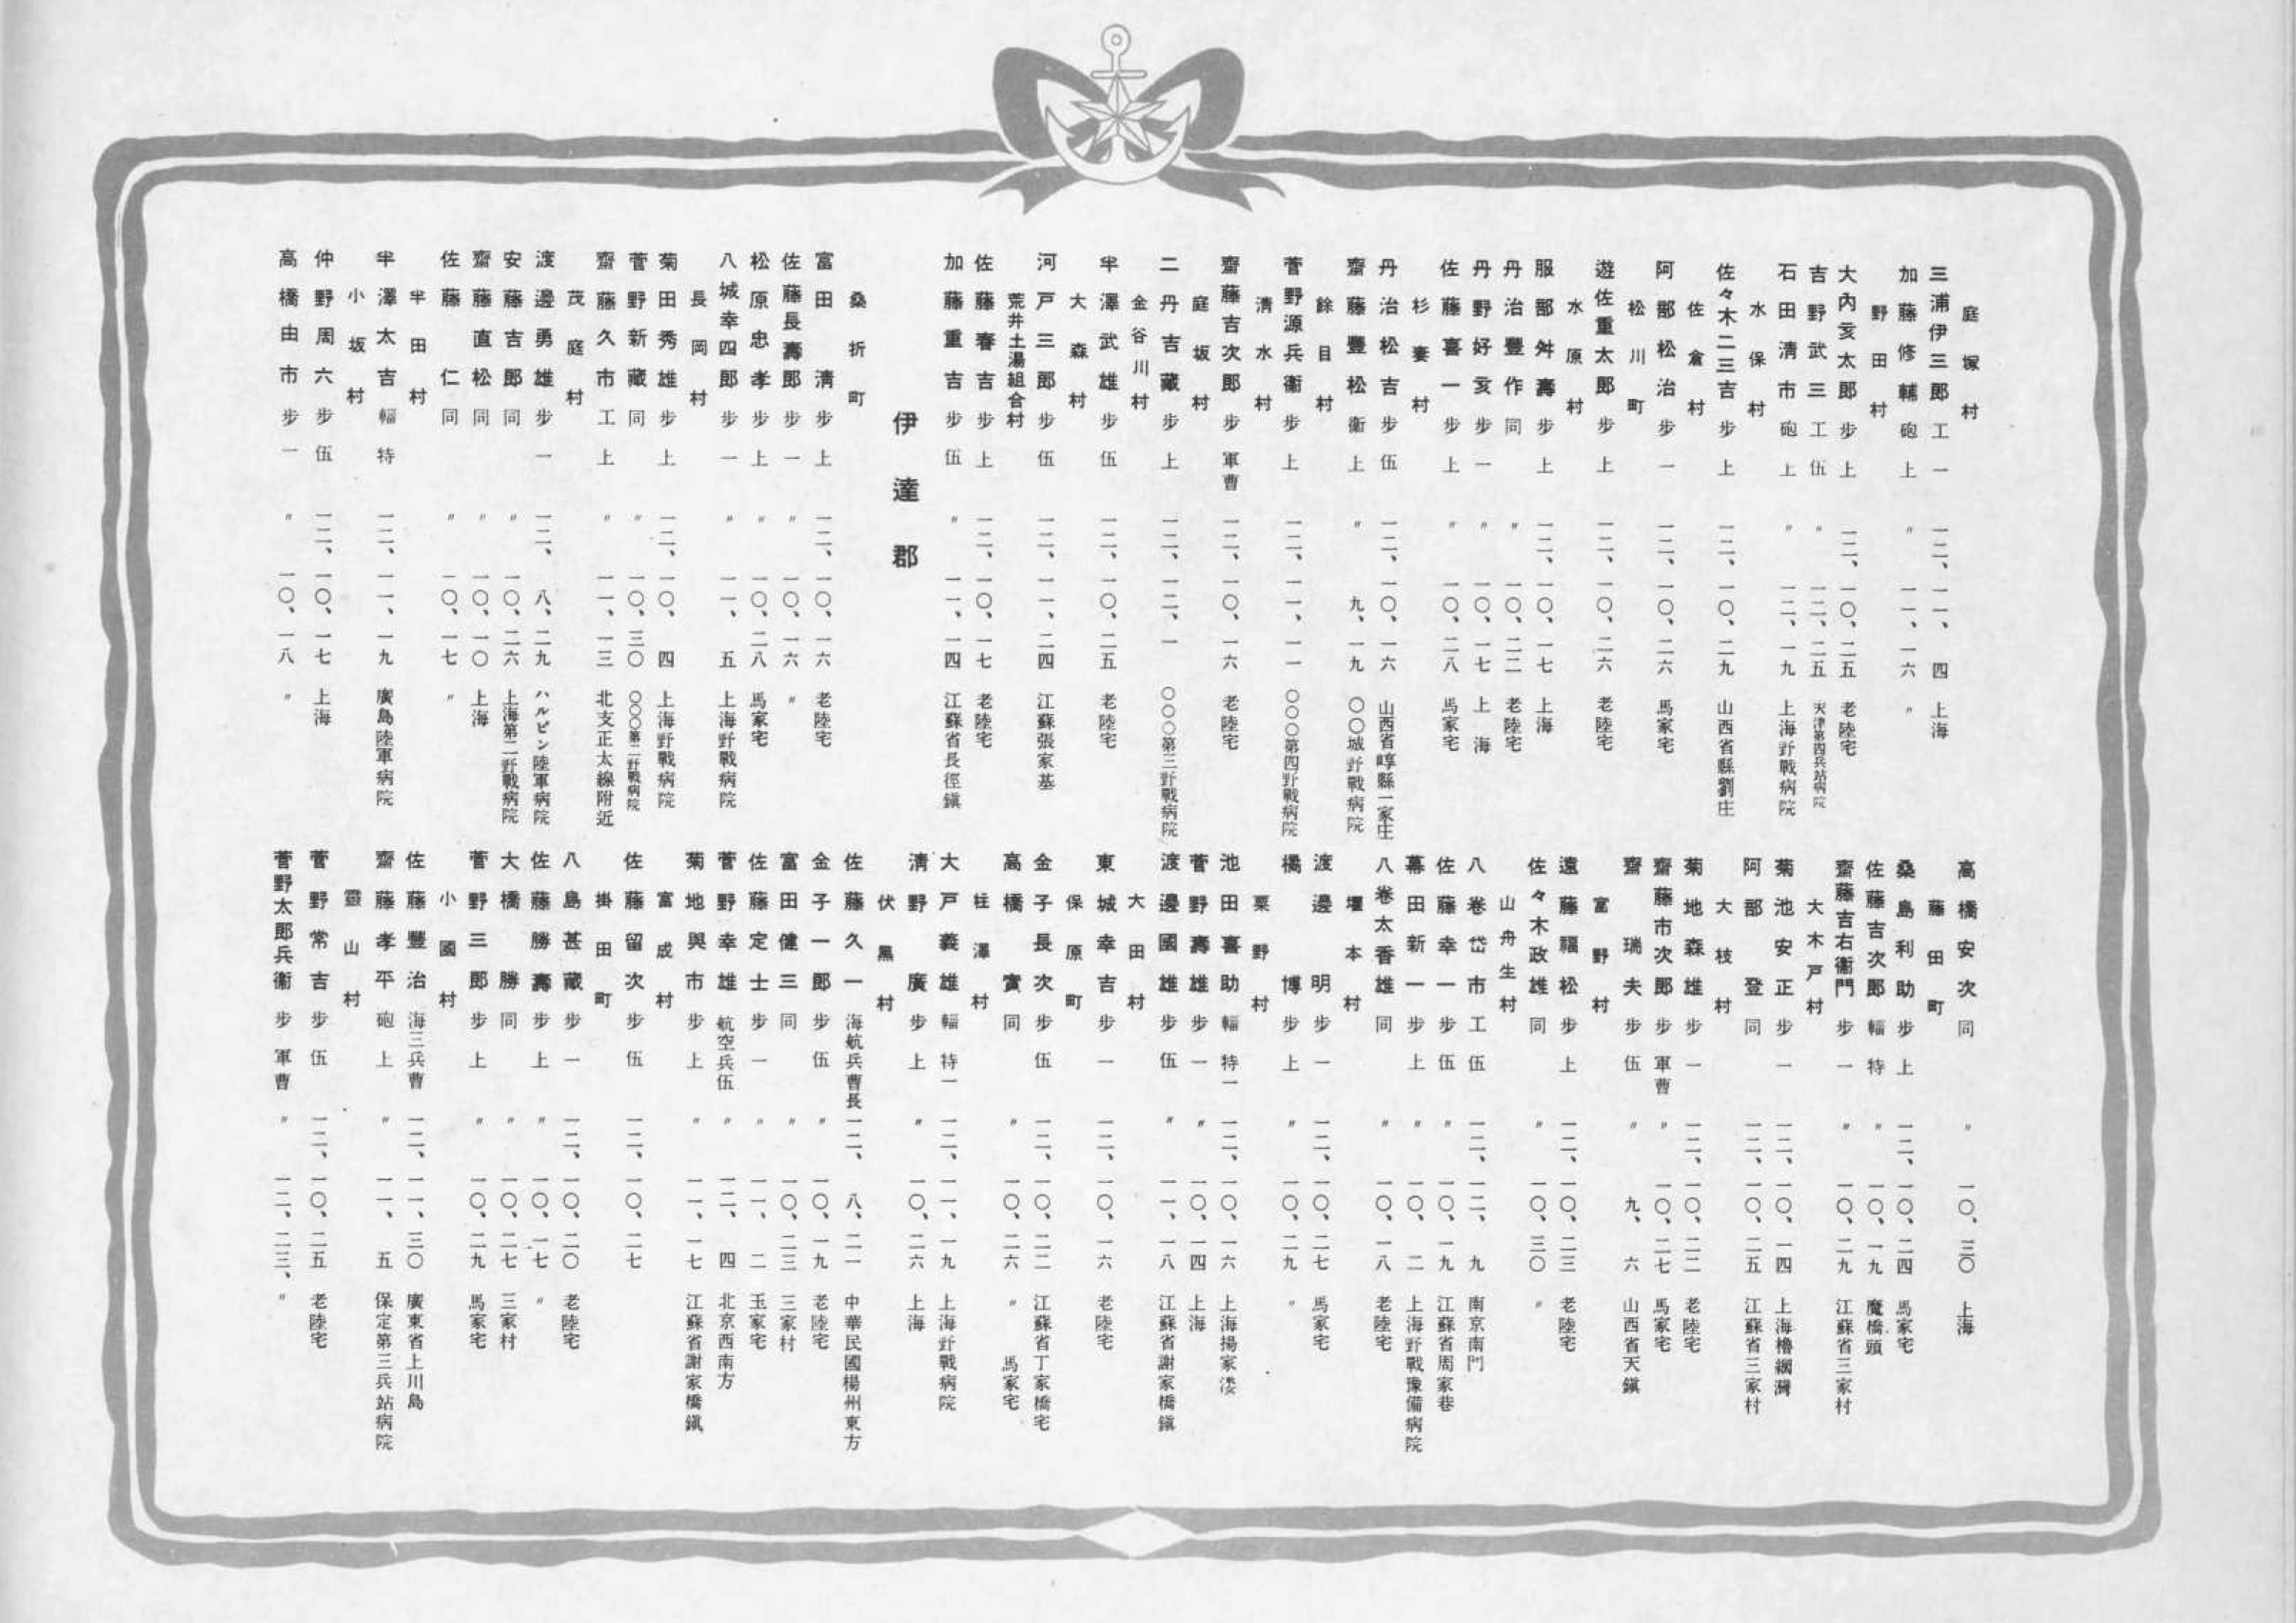 庭塚村
三浦伊三郎 工 一 一二、一一、四 上海
加藤修輔 砲 上 〃 一一、一六 〃
野田村
大內亥太郎 步 上 一二、一〇、二五 老陸宅
吉野武三 工 伍 〃 一二、二五 天津第四兵站病院
石田淸市 砲 上 〃 一二、一九 上海野戰病院
水保村
佐々木二三吉 步 上 一二、一〇、二九 山西省縣劉庄
佐倉村
阿部松治 步 一 一二、一〇、二六 馬家宅
松川町
遊佐重太郎 步 上 一二、一〇、二六 老陸宅
水原村
服部舛壽 步 上 一二、一〇、一七 上海
丹治豐作 同 〃 一〇、二二 老陸宅
丹野好亥 步 一 〃 一〇、一七 上海
佐藤喜一 步 上 〃 一〇、二八 馬家宅
杉妻村
丹治松吉 步 伍 一二、一〇、一六 山西省崞縣一家庄
齋藤豐松 衞 上 〃 九、一九 〇〇城野戰病院
餘目村
菅野源兵衞 步 上 一二、一一、一一 〇〇〇第四野戰病院
淸水村
齋藤吉次郎 步 軍曹 一二、一〇、一六 老陸宅
庭坂村
二丹吉藏 步 上 一二、一二、一 〇〇〇第三野戰病院
金谷川村
半澤武雄 步 伍 一二、一〇、二五 老陸宅
大森村
河戸三郎 步 伍 一二、一一、二四 江蘇張家基
荒井土湯組合村
佐藤春吉 步 上 一二、一〇、一七 老陸宅
加藤重吉 步 伍 〃 一一、一四 江蘇省長徑鎭
伊達郡
桑折町
富田淸 步 上 一二、一〇、一六 老陸宅
佐藤長壽郎 步 一 〃 一〇、一六 〃
松原忠孝 步 上 〃 一〇、二八 馬家宅
八城幸四郎 步 一 〃 一一、五 上海野戰病院
長岡村
菊田秀雄 步 上 一二、一〇、四 上海野戰病院
菅野新藏 同 〃 一〇、三〇 〇〇〇第二野戰病院
齋藤久市 工 上 〃 一一、一三 北支正太線附近
茂庭村
渡邊勇雄 步 一 一二、八、二九 ハルピン陸軍病院
安藤吉郎 同 〃 一〇、二六 上海第二野戰病院
齋藤直松 同 〃 一〇、一〇 上海
佐藤仁 同 〃 一〇、一七 〃
半田村
半澤太吉 輜 特 一二、一一、一九 廣島陸軍病院
小坂村
仲野周六 步 伍 一二、一〇、一七 上海
高橋由市 步 一 〃 一〇、一八 〃
高橋安次 同 〃 一〇、三〇 上海
藤田町
桑島利助 步 上 一二、一〇、二四 馬家宅
佐藤吉次郎 輜 特 〃 一〇、一九 魔橋頭
齋藤吉右衞門 步 一 〃 一〇、二九 江蘇省三家村
大木戸村
菊池安正 步 一 一二、一〇、一四 上海櫓網灣
阿部登 同 一二、一〇、二五 江蘇省三家村
大枝村
菊地森雄 步 一 一二、一〇、二二 老陸宅
齋藤市次郎 步 軍曹 〃 一〇、二七 馬家宅
齋瑞夫 步 伍 〃 九、六 山西省天鎭
富野村
遠藤福松 步 上 一二、一〇、二三 老陸宅
佐々木政雄 同 〃 一〇、三〇 〃
山舟生村
八卷岱市 工 伍 一二、一二、九 南京南門
佐藤幸一 步 伍 〃 一〇、一九 江蘇省周家巷
幕田新一 步 上 〃 一〇、二 上海野戰豫備病院
八卷太香雄 同 〃 一〇、一八 老陸宅
堰本村
渡邊明 步 一 一二、一〇、二七 馬家宅
橘博 步 上 〃 一〇、二九 〃
粟野村
池田喜助 輜 特一 一二、一〇、一六 上海揚家漊
菅野壽雄 步 一 〃 一〇、一四 上海
渡邊國雄 步 伍 〃 一一、一八 江蘇省謝家橋鎭
大田村
東城幸吉 步 一 一二、一〇、一六 老陸宅
保原町
金子長次 步 伍 一二、一〇、二二 江蘇省丁家橋宅
高橋實 同 〃 一〇、二六 〃 馬家宅
柱澤村
大戸義雄 輜 特一 一二、一一、一九 上海野戰病院
淸野廣 步 上 〃 一〇、二六 上海
伏黑村
佐藤久一 海航兵曹長 一二、八、二一 中華民國楊州東方
金子一郎 步 伍 〃 一〇、一九 老陸宅
富田健三 同 〃 一〇、二三 三家村
佐藤定士 步 一 〃 一一、二 玉家宅
菅野幸雄 航空兵伍 〃 一二、四 北京西南方
菊地與市 步 上 〃 一一、一七 江蘇省謝家橋鎭
富成村
佐藤留次 步 伍 一二、一〇、二七
掛田町
八島甚藏 步 一 一二、一〇、二〇 老陸宅
佐藤勝壽 步 上 〃 一〇、一七 〃
大橋勝 同 〃 一〇、二七 三家村
菅野三郎 步 上 〃 一〇、二九 馬家宅
小國村
佐藤豐治 海三兵曹 一二、一一、三〇 廣東省上川島
齋藤孝平 砲 上 〃 一一、五 保定第三兵站病院
靈山村
菅野常吉 步 伍 一二、一〇、二五 老陸宅
菅野太郎兵衞 步 軍曹 〃 一二、二三、〃